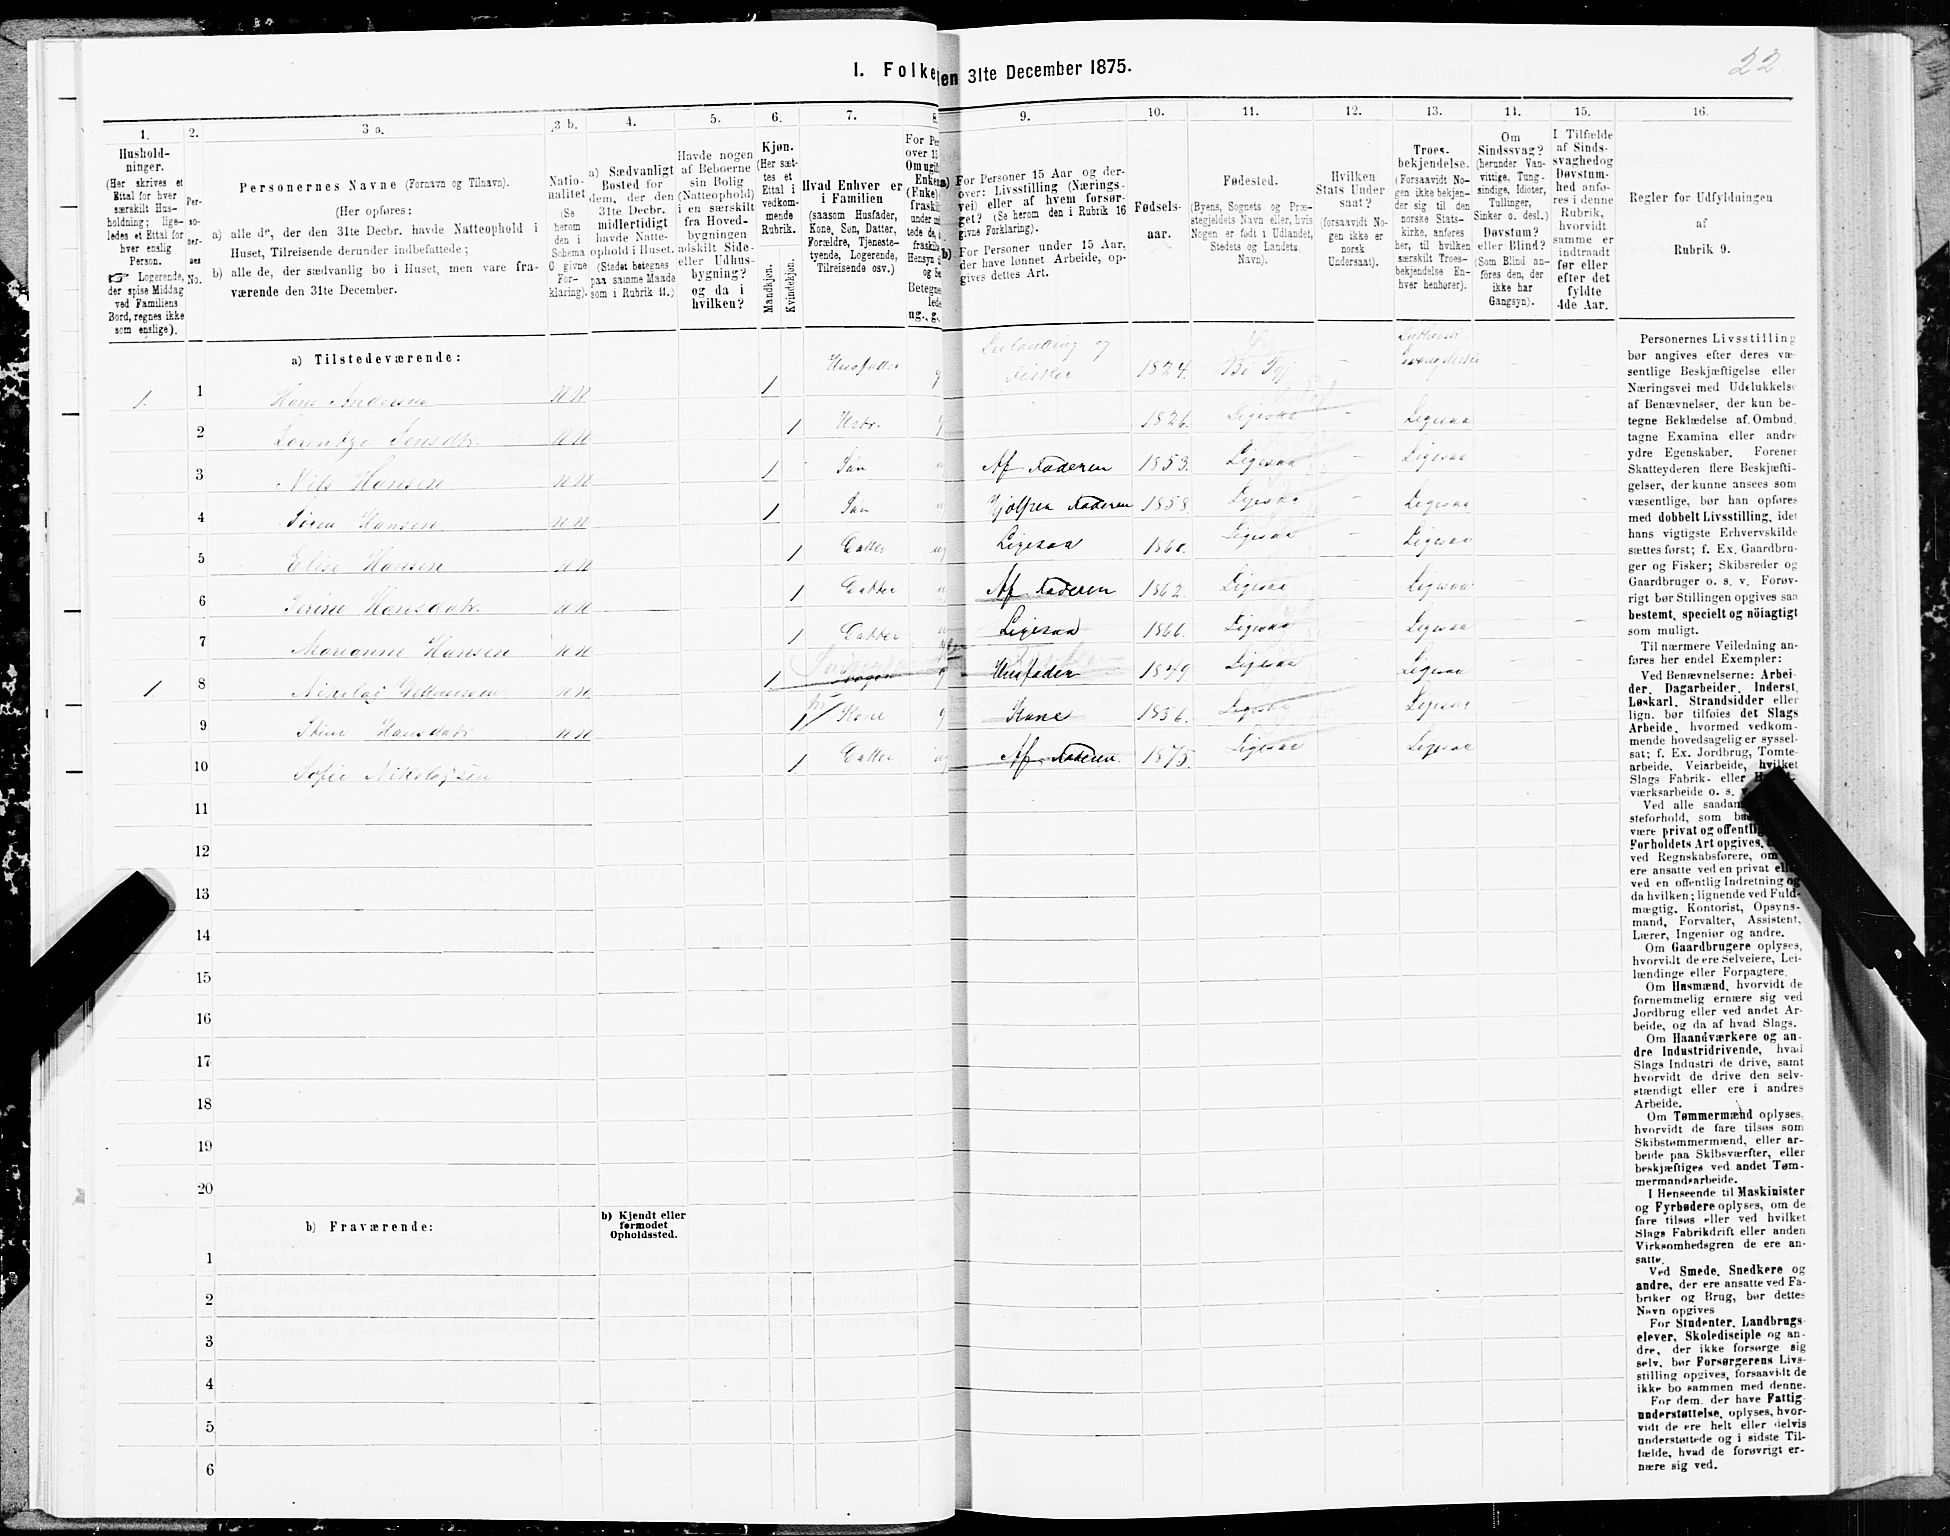 22.
I. Folke
den 31te December 1875.
1.
Husholdninger.
(Her skrives et
Ettal for hver
særskilt Husholdning; ligeledes
et Ettal for
hver enslig
Person.
☞ Logerende,
der spise Middag
ved Familiens
Bord, regnes ikke
som enslige).
2.
Personernes
No.
3 a.
Personernes Navne (Fornavn og Tilnavn).
(Her opføres:
a) alle de, der den 31te Decbr. havde Natteophold i
Huset, Tilreisende derunder indbefattede;
b) alle de, der sædvanlig bo i Huset, men vare fraværende
den 31te December.
3 b.
Nationalitet
(Se
herom
den i
Schema
C givne
Forklaring).
4.
a) Sædvanligt
Bosted for
dem, der den
31te Decbr.
midlertidigt
havde Natteophold
i Huset.
(Stedet betegnes
paa samme Maade
som i Rubrik 11.)
5.
Havde nogen
af Beboerne
sin Bolig
(Natteophold)
i en særskilt
fra Hovedbygningen
adskilt Sideeller
Udhusbygning?
og da i
hvilken?
6.
Kjøn.
(Her sættes
et
Ettal i
vedkommende
Rubrik.
Mandkjøn.
Kvindekjøn.
7.
Hvad Enhver er
i Familien
(saasom Husfader,
Kone, Søn, Datter,
Forældre, Tjenestetyende,
Logerende,
Tilreisende osv.)
8.
For Per
over 15
Om ugift
Enkem
(Enke)
fraskilt
Betegne
ug., g.,
9.
a) For Personer 15 Aar og derover:
Livsstilling (Næringsvei)
eller af hvem forsørget?
(Se herom den i Rubrik 16
givne Forklaring).
b) For Personer under 15 Aar,
der have lønnet Arbeide, opgives
dettes Art.
10.
Fødselsaar.
11.
Fødested.
(Byens, Sognets og Præstegjeldets
Navn eller, hvis
Nogen er født i Udlandet,
Stedets og Landets
Navn).
12.
Hvilken
Stats Undersaat?
(forsaavidt Nogen
ikke er
norsk
Undersaat).
13.
Troesbekjendelse.
(Forsaavidt Nogen
ikke bekjender
sig til den
norske Statskirke,
anføres
her, til hvilken
særskilt Troesbekjendelse
Enhver
henhører).
14.
Om
Sindssvag?
(herunder Vanvittige,
Tungsindige,
Idioter,
Tullinger,
Sinker o. desl.)
Døvstum?
eller Blind?
(Som Blind anføres
den, der
ikke har
Gangsyn).
15.
I Tilfælde
af Sindssvaghed
og
Døvstumhed
anføres
i denne
Rubrik,
hvorvidt
samme er
indtraadt
før eller
efter det
fyldte
4de Aar.
16.
Regler for Udfyldningen
af
Rubrik 9.
a) Tilstedeværende:
1. 1 Hans Andersen nn 1 Husfader g Leilænding og Fisker 1824. Bø –
2 nn 1 Hstr. 1826. Ligesaa – Ligesaa
3 Nils Hansen nn 1 Søn Af Faderen 1853. Ligesaa – Ligesaa
4 Hansen nn 1 Søn Hjelper Faderen 1858 Ligesaa – Ligesaa
5 Elise Hansen nn 1 Datter ug Ligesaa 1860. Ligesaa – Ligesaa
6 Serine Hansdatr. nn 1 Datter Af Faderen 1862. Ligesaa – Ligesaa
7 Marianne Hansen nn 1 Datter Ligesaa 1866. Ligesaa – Ligesaa
1 8 Nikolai nn 1 g Husfader 1849 Ligesaa – Ligesaa
9 Hansdatr nn 1 Kone g Kone 1856. Ligesaa Ligesaa
10 Sofie Nikolaisen 1 Datter ug Af Faderen. 1875. Ligesaa Ligesaa
11
12
13
14
15
16
17
18
19
20
b) Fraværende:
b) Kjendt eller
formodet
Opholdssted.
1
2
3
4
5
6
Personernes Livsstilling
bør angives efter deres væsentlige
Beskjæftigelse eller
Næringsvei med Udelukkelse
af Benævnelser, der kun betegne
Beklædelse af Ombud,
tagne Examina eller andre
ydre Egenskaber. Forener
Skatteyderen flere Beskjæftigelser,
der kunne ansees som
væsentlige, bør han opføres
med dobbelt Livsstilling, idet
hans vigtigste Erhvervskilde
sættes først; f. Ex. Gaardbruger
og Fisker; Skibsreder og
Gaardbruger o. s. v. Forøvrigt
bør Stillingen opgives saa
bestemt, specielt og nöiagtigt
som muligt.
Til nærmere Veiledning anføres
her endel Exempler:
Ved Benævnelserne: Arbeider,
Dagarbeider, Inderst,
Løskarl, Strandsidder eller
lign. bør tilføies det Slags
Arbeide, hvormed vedkommende
hovedsagelig er sysselsat;
f. Ex. Jordbrug, Tomtearbeide,
Veiarbeide, hvilket
Slags Fabrik- eller
værksarbeide o. s.
Ved alle saadan
steforhold, som
være privat og offentlig
Forholdets Art opgives,
ved Regnskabsførere, om
ere ansatte ved en privat eller
ved en offentlig Indretning og
da hvilken; lignende ved Fuldmægtig,
Kontorist, Opsynsmand,
Forvalter, Assistent,
Lærer, Ingeniør og andre.
Om Gaardbrugere oplyses,
hvorvidt de ere Selveiere, Leilændinge
eller Forpagtere.
Om Husmænd, hvorvidt de
fornemmelig ernære sig ved
Jordbrug eller ved andet Arbeide,
og da af hvad Slags.
Om Haandværkere og andre
Industridrivende, hvad
Slags Industri de drive, samt
hvorvidt de drive den selvstændigt
eller ere i andres
Arbeide.
Om Tømmermænd oplyses,
hvorvidt de fare tilsøs som
Skibstømmermænd, eller arbeide
paa Skibsværfter, eller
beskjæftiges ved andet Tømmermandsarbeide.
I Henseende til Maskinister
og Fyrbødere oplyses, om de
fare tilsøs eller ved hvilket
Slags Fabrikdrift eller anden
Virksomhedsgren de ere ansatte.
Ved Smede, Snedkere og
andre, der ere ansatte ved Fabriker
og Brug, bør dettes
Navn opgives
For Studenter, Landbrugselever,
Skoledisciple og andre,
der ikke forsørge sig
selv, bør Forsørgerens Livsstilling
opgives, forsaavidt de
ikke bo sammen med denne.
For dem, der have Fattigunderstøttelse,
oplyses, hvorvidt
de ere helt eller delvis
understøttede og i sidste Tilfælde,
hvad de forøvrigt ernære
sig ved.